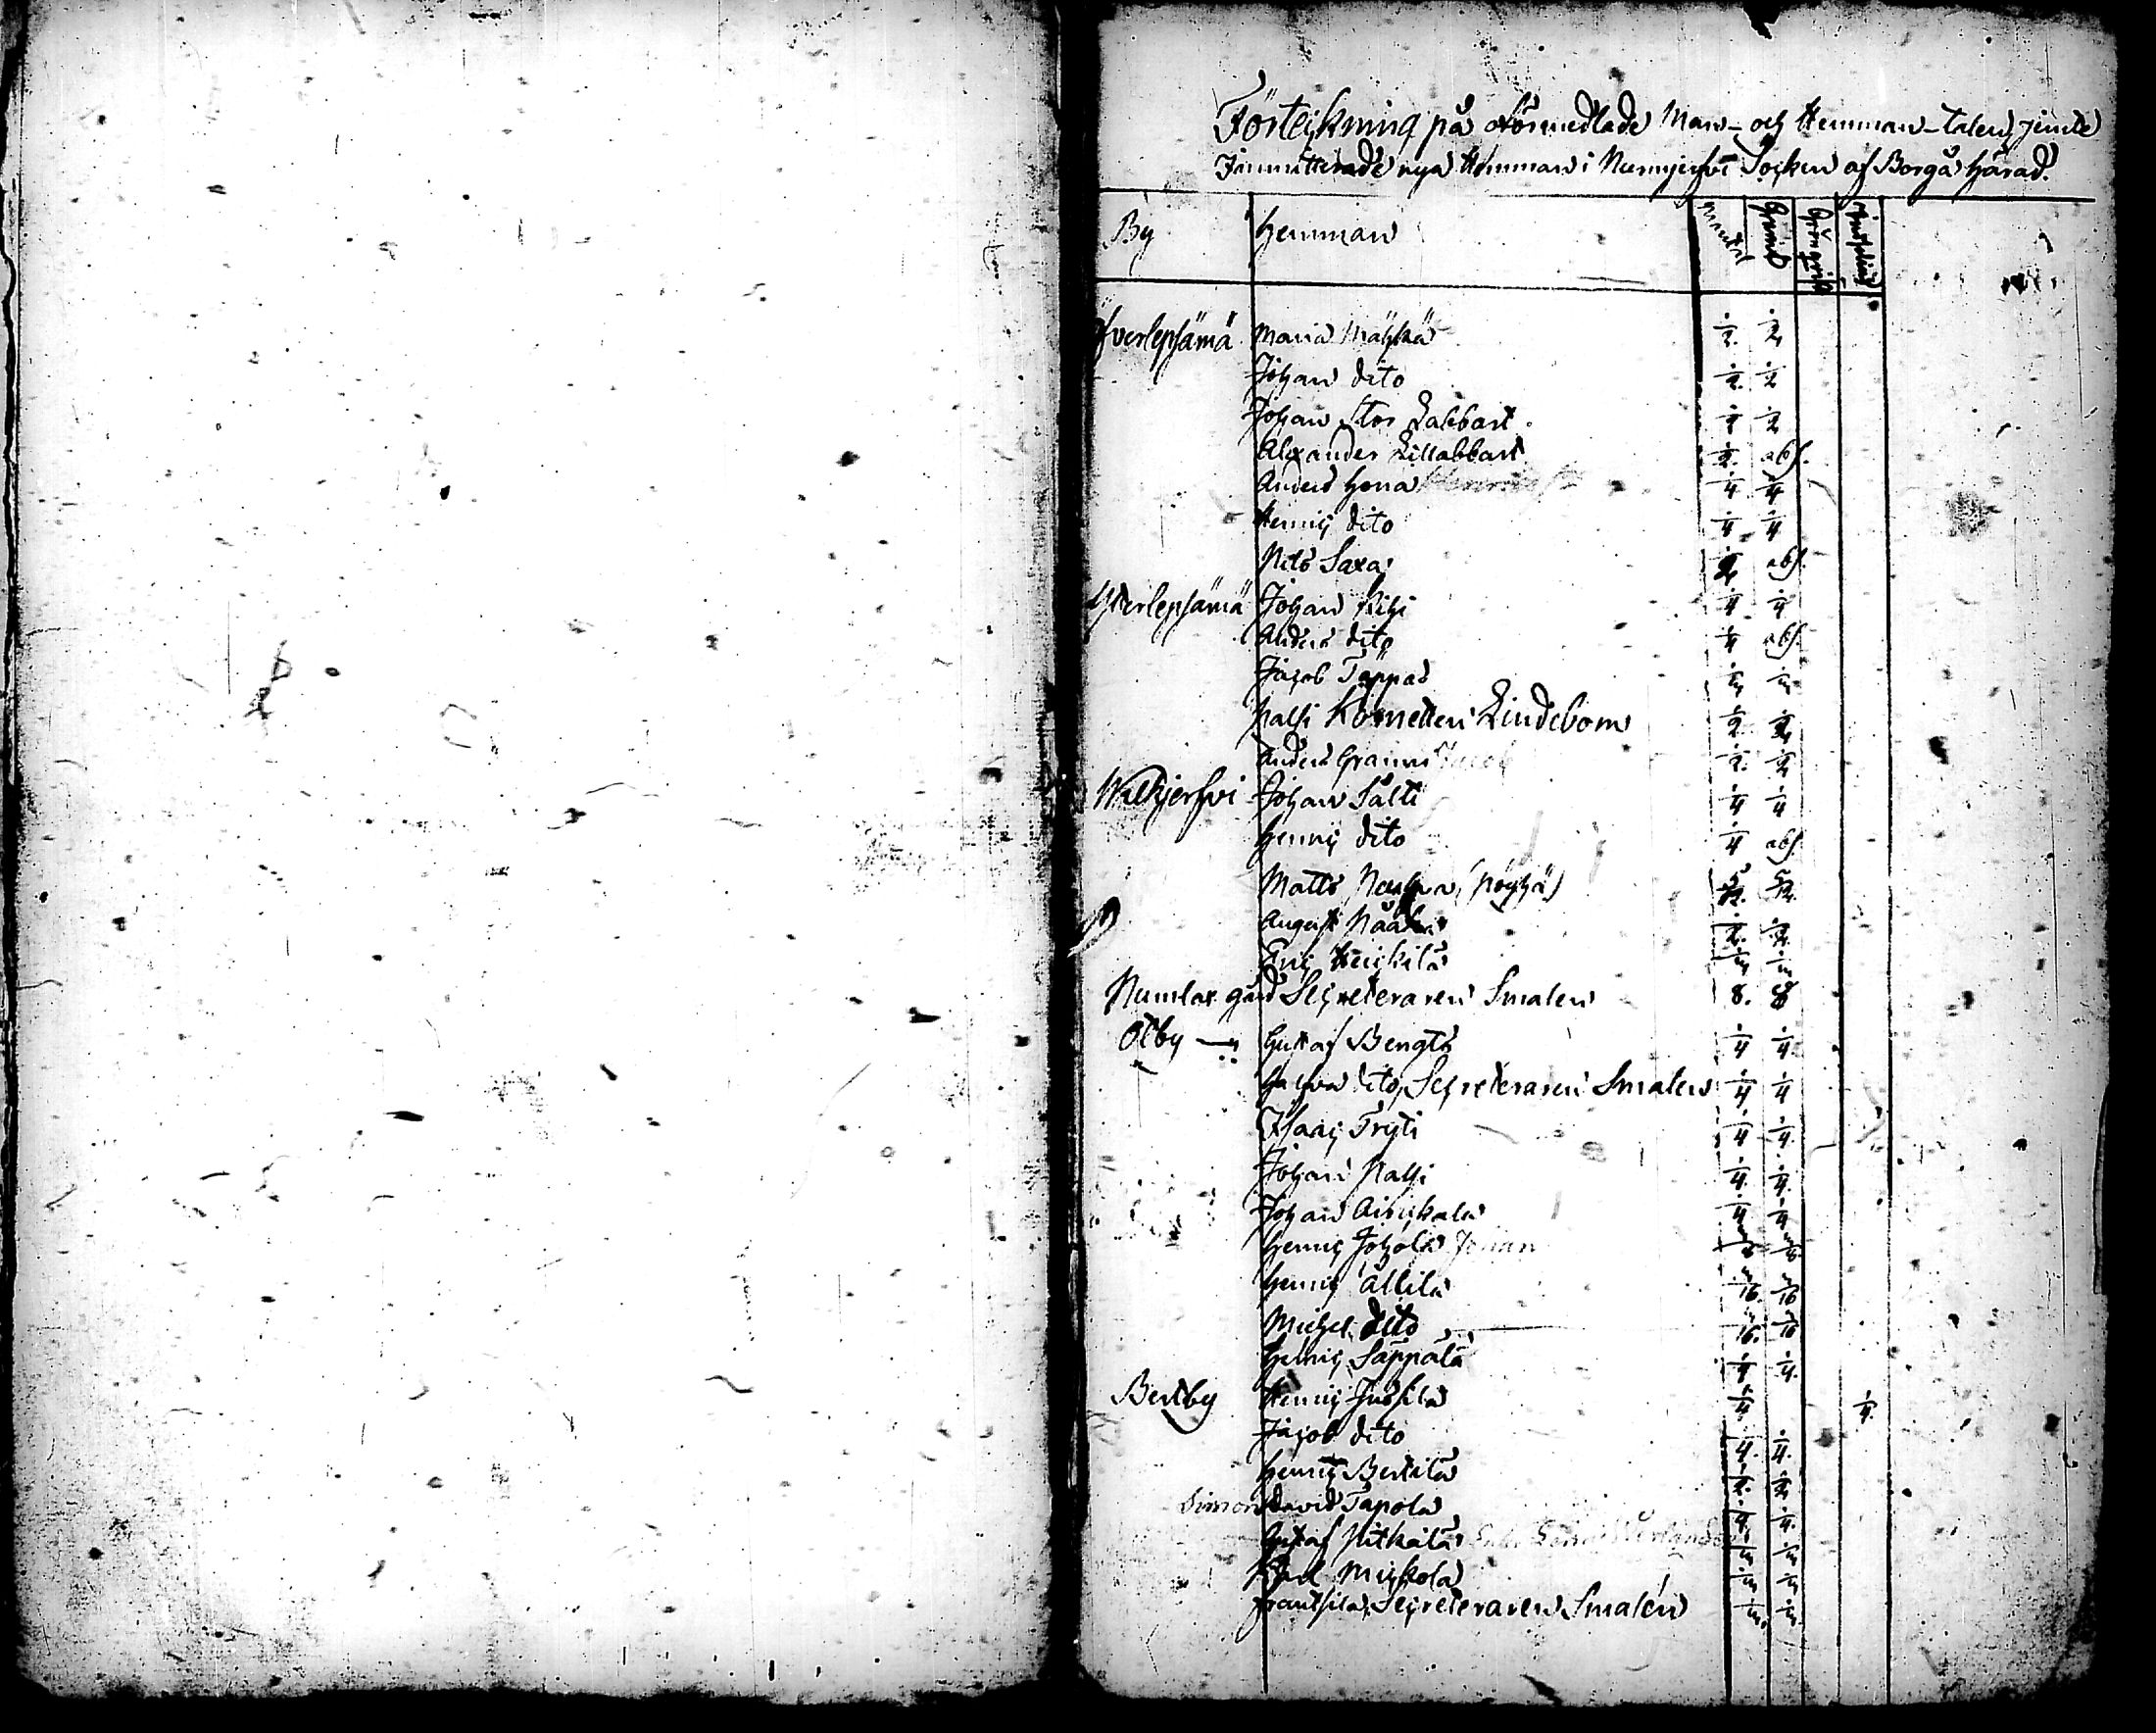 Förteckning på oförmedlade Man- och Hemman-talen, jemte
Immitterade nya Hemman i Nurmijerfvi Socken af Borgå härad.
By Hemman Mantal
Öfverlepsämä Maria 1/2. 1/2
Johan dito 1/2. 1/2
Johan Stor Labbart 1/2 1/2
Alexander Lillabbart 1/2. abs.
Anders Hena 1/4 1/4
Henric dito 1/4 1/4
Nils Saxa 1/2 abs.
Ytterlepsämä Johan Kihi 1/4 1/4
Anders dito 1/4 abs.
Jacob Tappas 1/3 1/3
Palhi Kornetten Lindebom 1/2. 1/2
Anders Granni 1/2. 1/2
Walkjerfvi Johan Salti 1/4 1/4
Henric dito 1/4 abs.
Matts (Pöyhä) 5/12. 5/12.
August 1/2. 1/2.
Eric Heickilä 1/3 1/3
Numlax gård Secreteraren Smalen 8. 8
Olby Gustaf Bengts 1/4 1/4
dito, Secreteraren Smalen 1/4 1/4
Isaac Tryti 1/4 1/4.
Johan Palhi 1/4. 1/4.
Johan 1/4 1/4
Henric Johola Johan
Henric Ållila 3/16. 3/16
Michel dito 3/16. 3/16
Henric Sappala 1/4 1/4.
Bertby Henric Jussila 1/4 1/4.
Jacob dito 1/4. 1/4.
Henric Bertila 1/2. 1/2
Simon David Tapola 1/4. 1/4.
Gustaf Pitkälä 1/3 1/3
Karl Mickola 1/3 1/3
Frantsila, Secreteraren Smalén 1/3. 1/3.